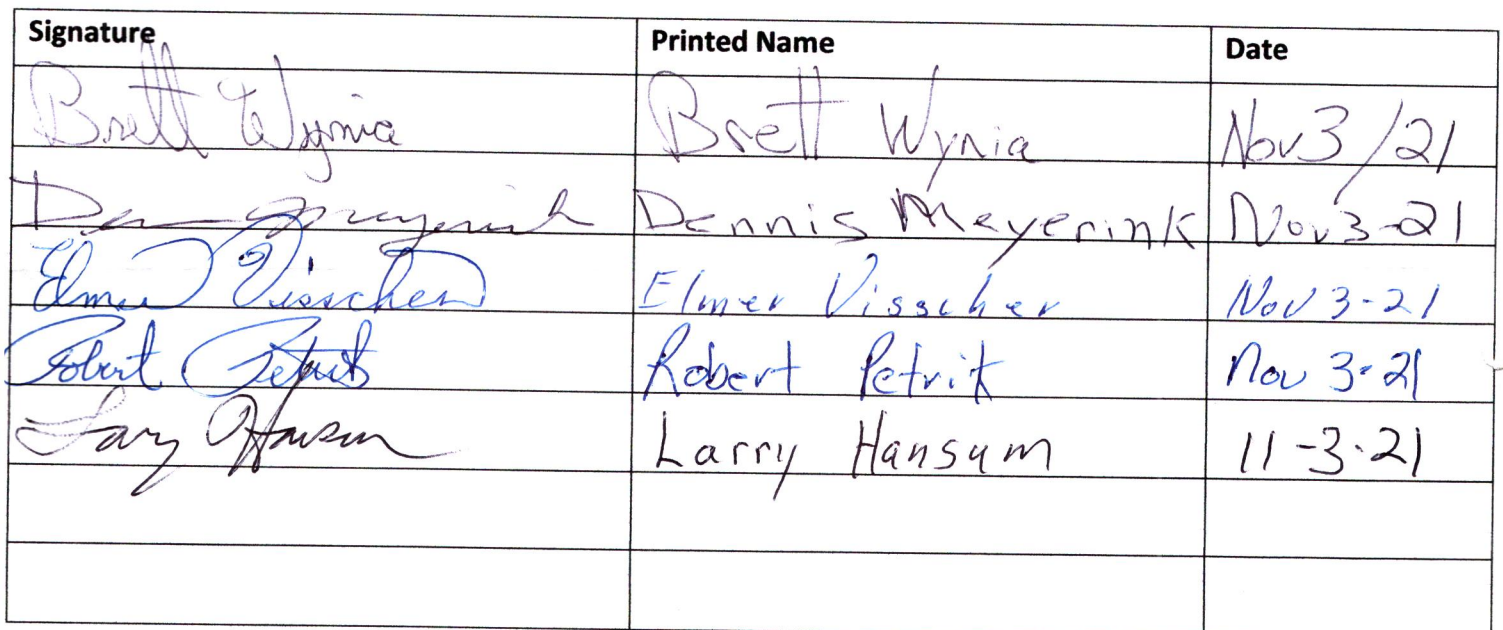 Signature Printed Name Date
Brett Wynia Brett Wynia Nov 3/21
Dennis Meyerink Nov 3-21
Elmer Visscher Elmer Visscher Nov 3-21
Robert Petrik Robert Petrik Nov 3-21
Larry Hansum 11-3-21